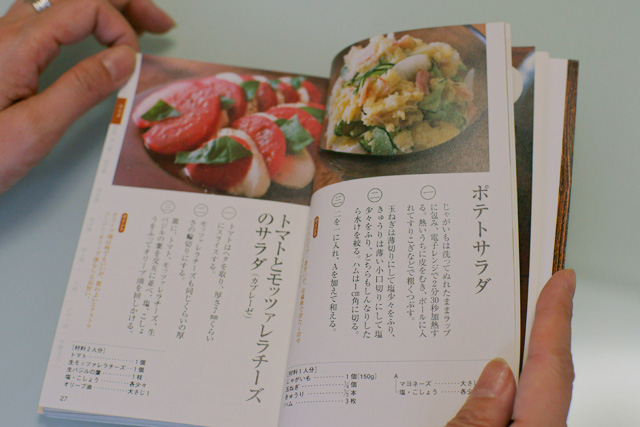 ポテトサラダ
一
じゃがいもは洗ってぬれたままラップ
に包み、電子レンジで2分30秒加熱す
る。熱いうちに皮をむき、ボールに入
れてすりこぎなどで粗くつぶす。
二
玉ねぎは薄切りにして塩少々をふり、
きゅうりは薄い小口切りにして塩
少々をふり、どちらもしんなりした
ら水けを絞る。ハムは1cm角に切る。
三
二を一に入れ、Aを加えて和える。
[材料1人分]
じゃがいも 1個(150g)
玉ねぎ
きゅうり
ハム 3枚
A
マヨネーズ 大さじ
塩・こしょう 各少々
トマトとモッツァレラチーズ
のサラダ(カプレーゼ)
一
トマトはヘタを取り、厚さ7mmくらい
にスライスする。
二
モッツァレラチーズも同じくらいの厚
さの輪切りにする。
三
皿に、トマト、モッツァレラチーズ、生
バジルの葉を交互に並べ、塩・こしょ
うをふってオリーブ油を回しかける。
[材料2人分]
トマト 1個
生モッツァレラチーズ 1個
生バジルの葉 1枝
塩・こしょう 各少々
オリーブ油 大さじ1
27